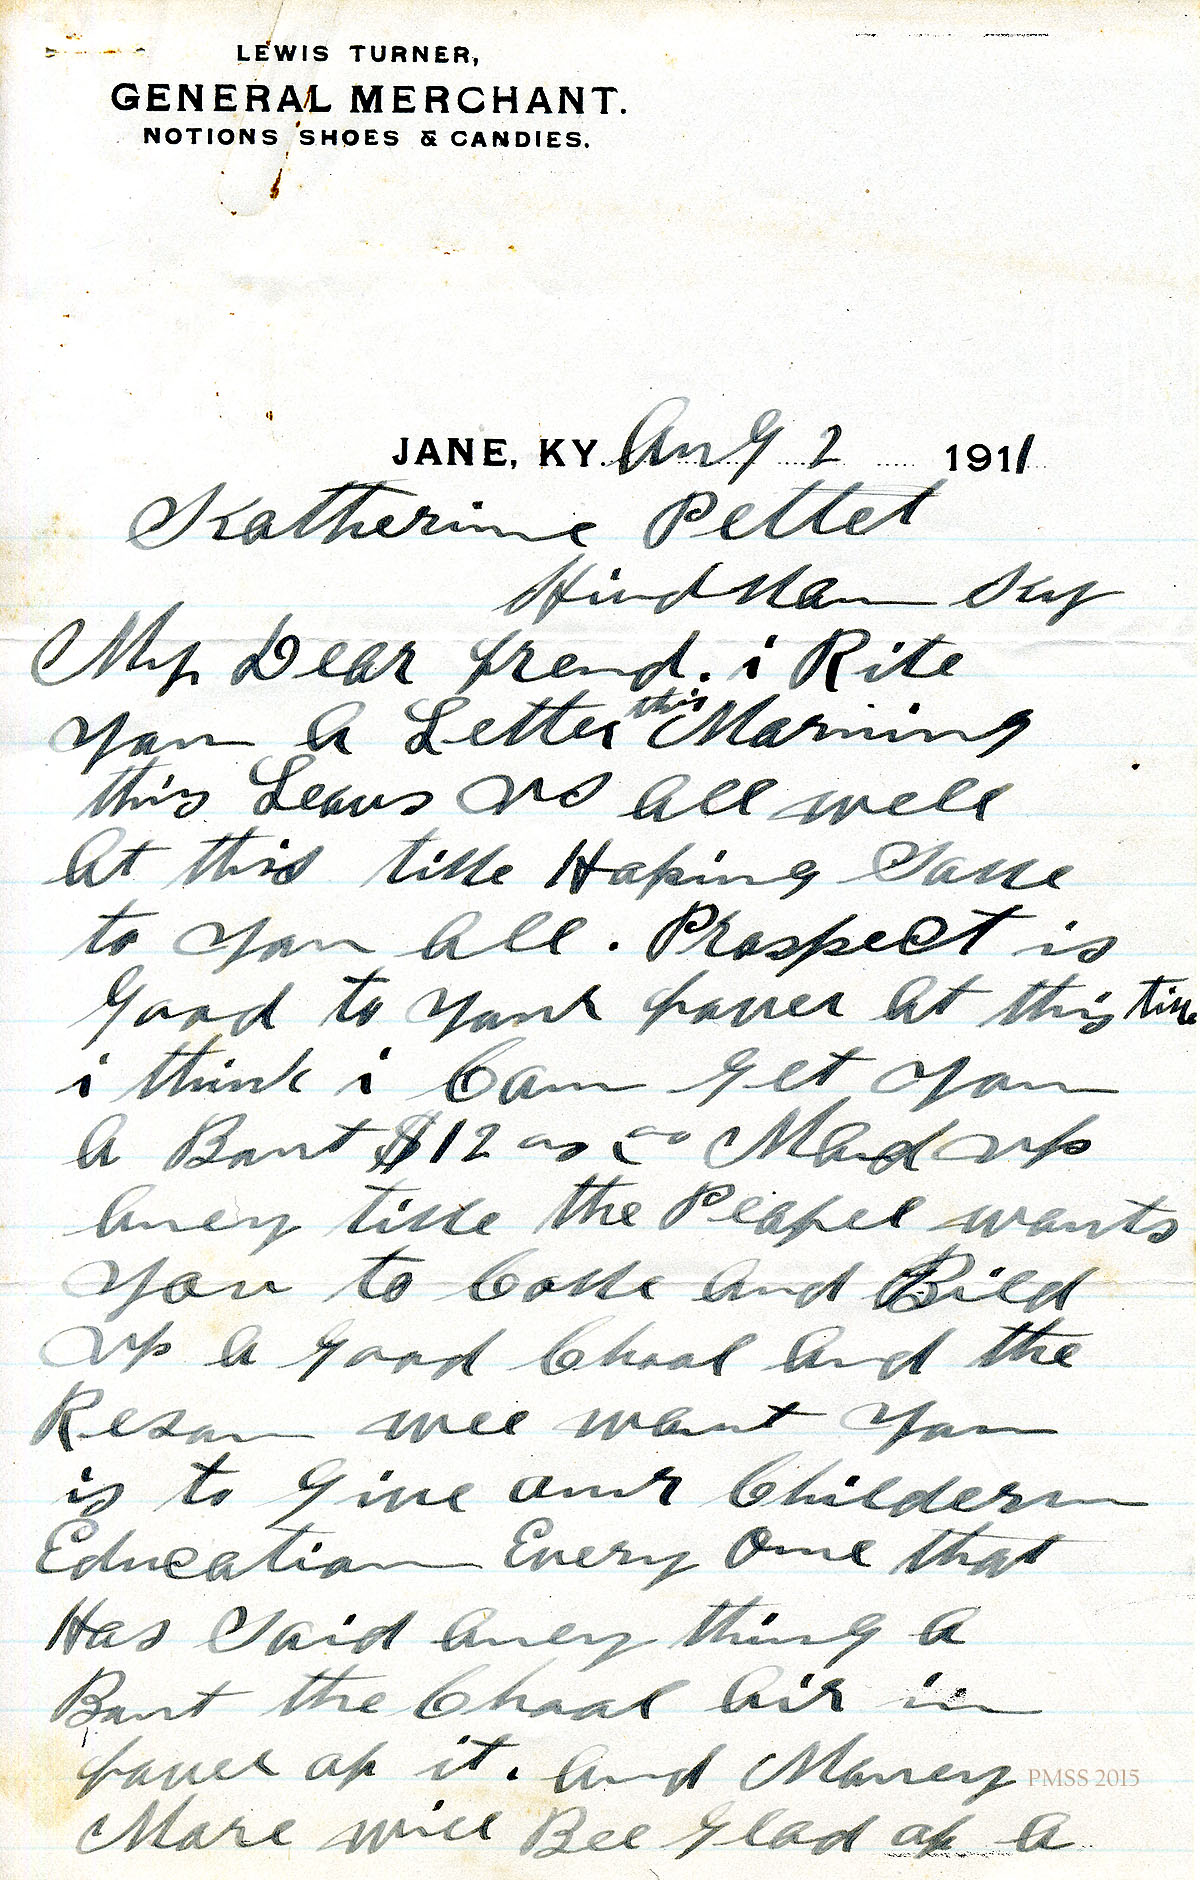 LEWIS TURNER,
GENERAL MERCHANT.
NOTIONS SHOES & CANDIES.
JANE, KY. Aug 2 1911
Katherine Pettet
Hindman Ky
My Dear frend. i Rite
you a Letter this Morning
this Leavs us all well
at this time Hoping Same
to you all. Prospect is
good to your faver at this time
i think i Can get you
a Bout $12 00 Mad up
aney time the Peapel wants
you to Come and Bild
up a good Chool and the
Reson wee want you
is to give our Childern
Education Every One that
Has Said aney thing a
Bout the Chool air in
faver of it. and Maney
More will Bee glad of a
PMSS 2015